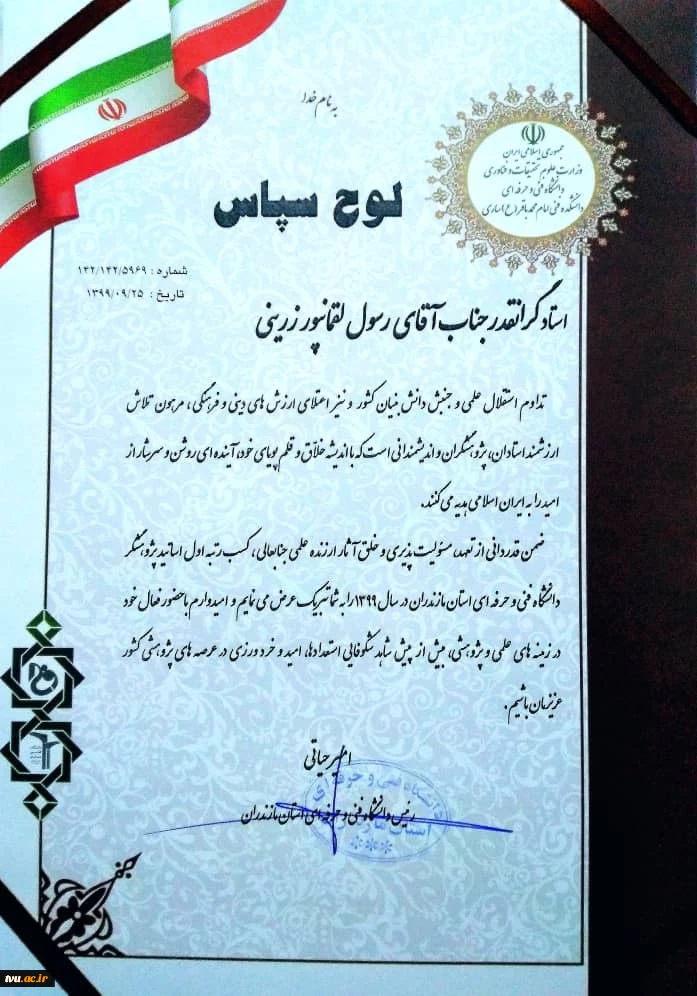 به نام خدا
جمهوری اسلامی ایران
وزارت علوم تحقیقات و فناوری
دانشگاه فنی و حرفه ای
دانشکده فنی امام محمد باقر (ع) ساری
لوح سپاس
شماره : ۱۴۲/۱۴۲/۵۹۶۹
تاریخ : ۱۳۹۹/۰۹/۲۵
استاد گرانقدر جناب آقای رسول لقمانپور زرینی
تداوم استقلال علمی و جنبش دانش بنیان کشور و نیز اعتلای ارزش های دینی و فرهنگی، مرهون تلاش
ارزشمند استادان، پژوهشگران و اندیشمندانی است که با اندیشه خلاّق و قلم پویای خود، آینده ای روشن و سرشار از
امید را به ایران اسلامی هدیه می کنند.
ضمن قدردانی از تعهد، مسئولیت پذیری و خلق آثار ارزنده علمی جنابعالی، کسب رتبه اول اساتید پژوهشگر
دانشگاه فنی و حرفه ای استان مازندران در سال ۱۳۹۹ را به شما تبریک عرض می نمایم و امیدوارم با حضور فعال خود
در زمینه های علمی و پژوهشی، بیش از پیش شاهد شکوفایی استعدادها، امید و خردورزی در عرصه های پژوهشی کشور
عزیزمان باشیم.
امیر حیاتی
رئیس دانشگاه فنی و حرفه ای استان مازندران
دانشگاه فنی و حرفه ای
استان مازندران
tvu.ac.ir